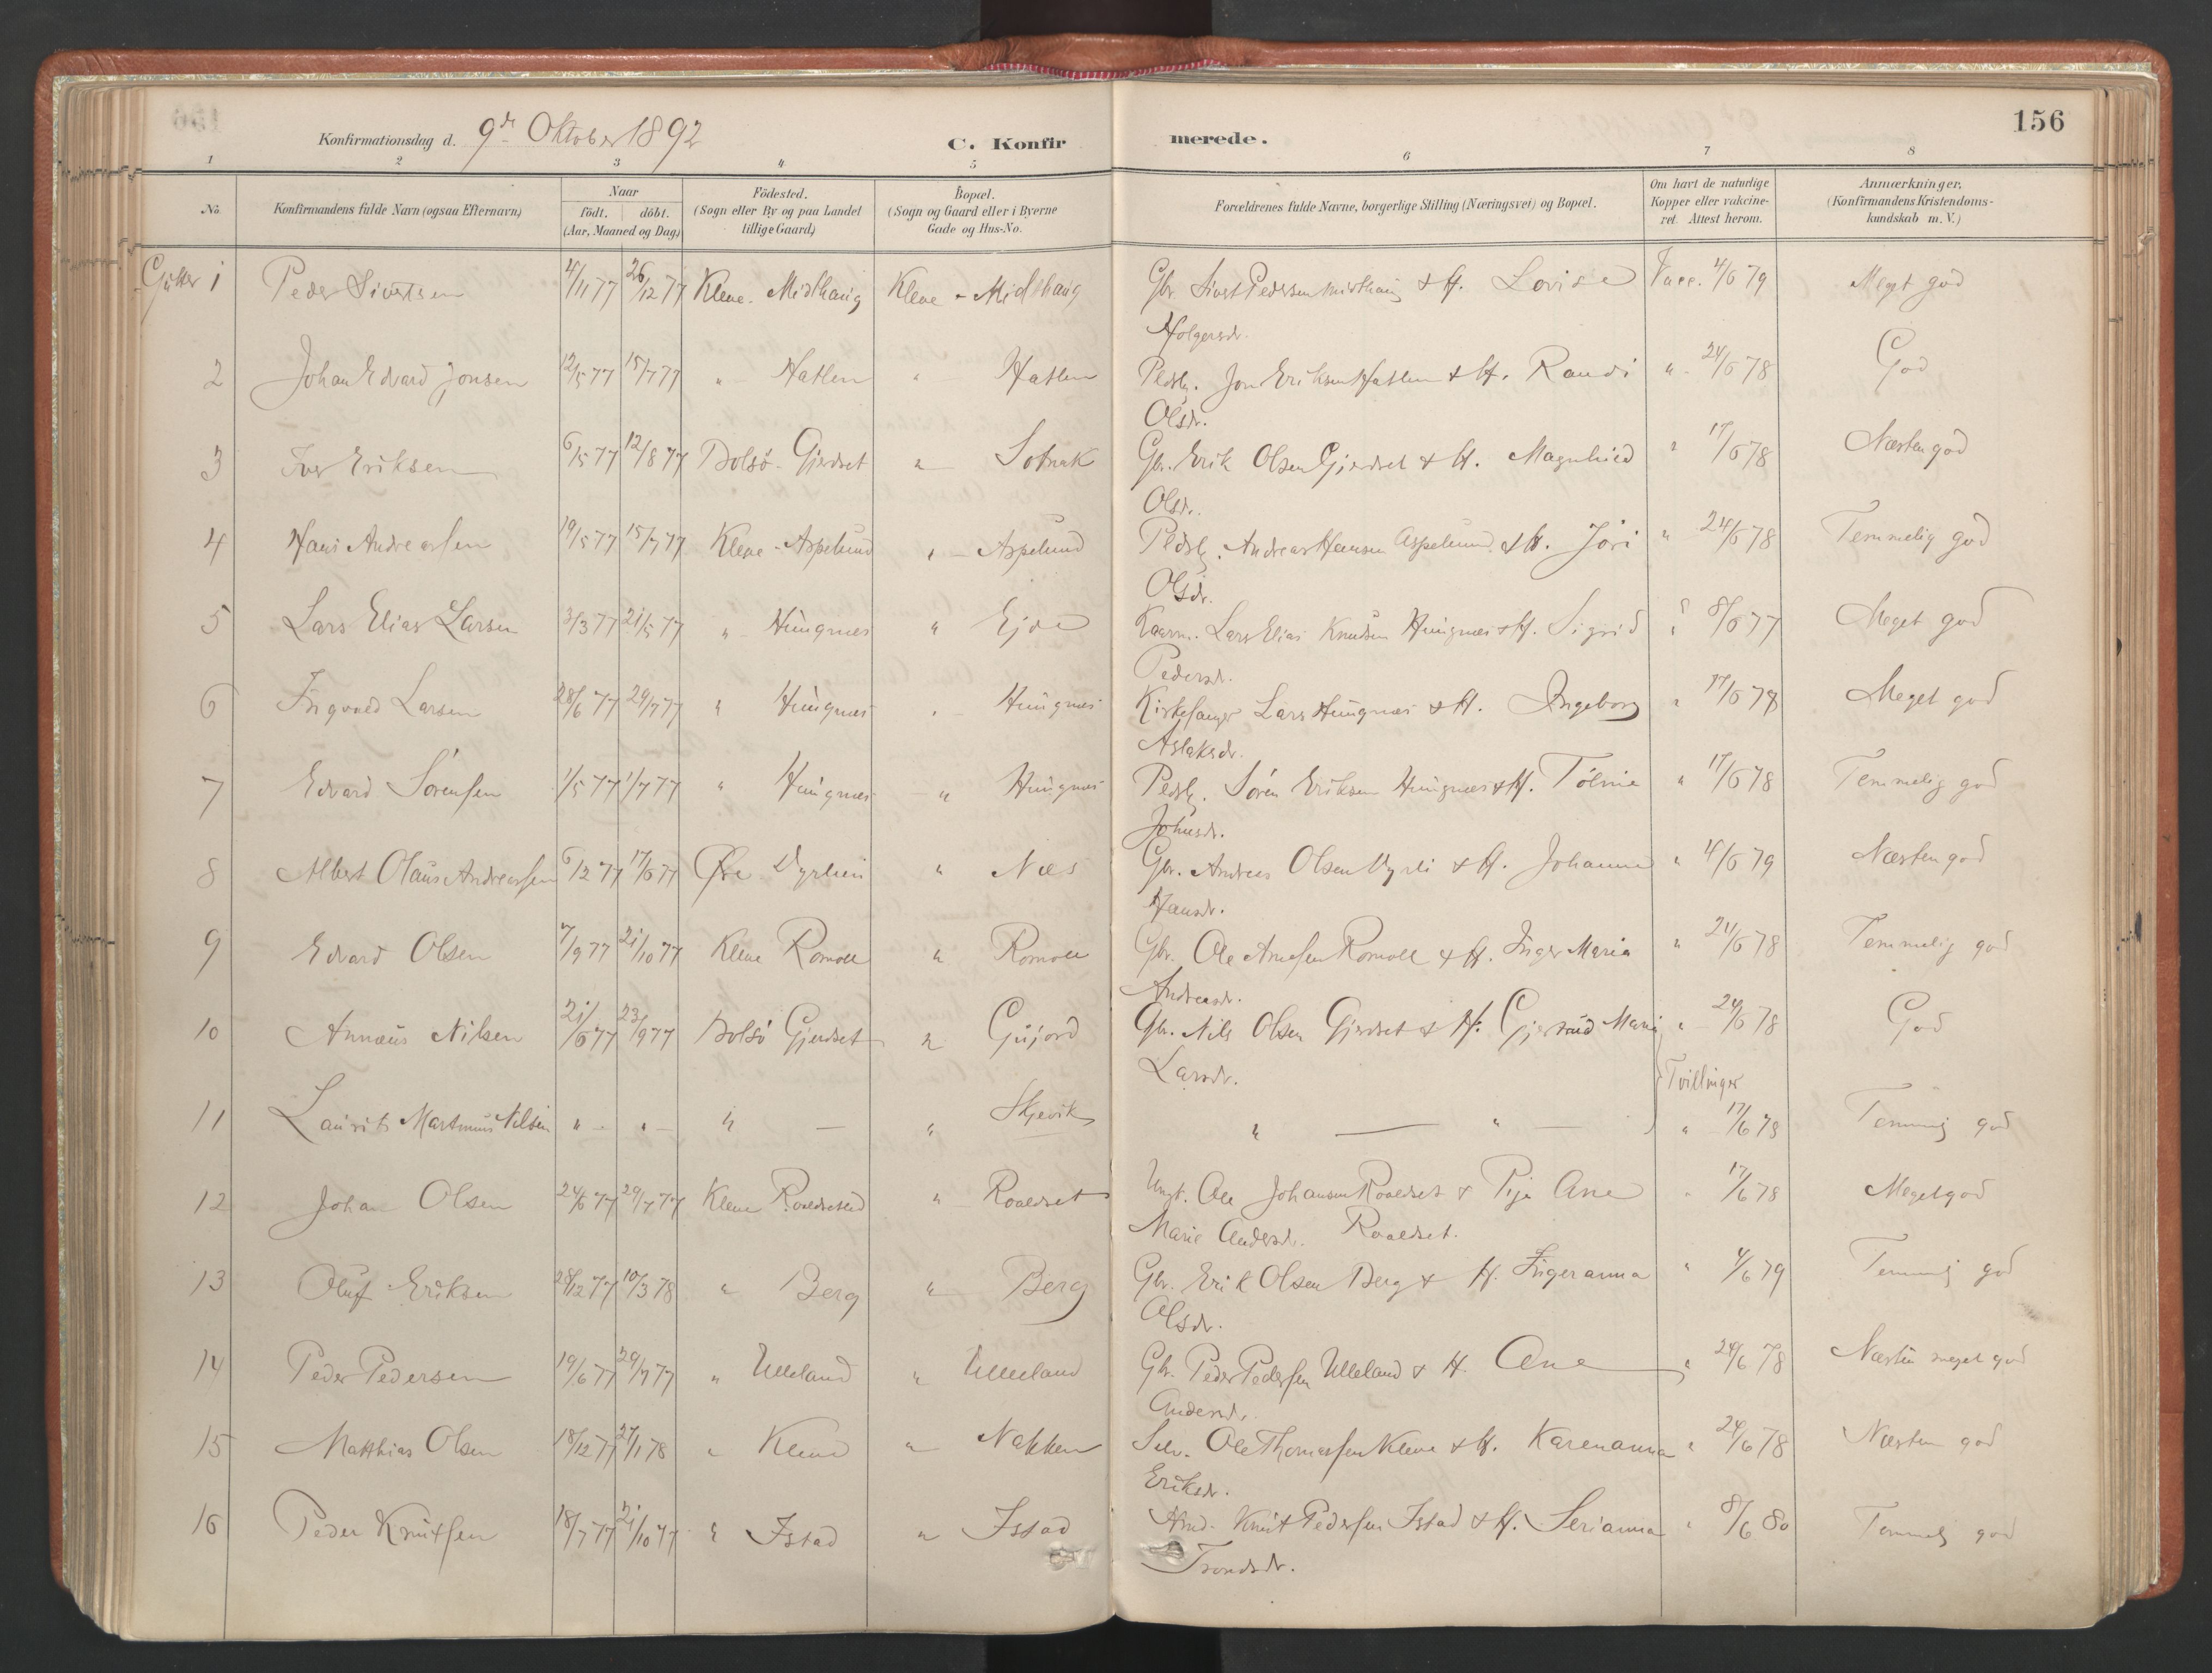 156
Konfirmationsdag d. 9de Oktober 1892 C. Konfirmerede.
1 2 3 4 5 6 7 8
No. Konfirmandens fulde Navn (ogsaa Efternavn) Naar Födt. döbt. (Aar, Maaned og Dag) Födested. (Sogn eller By og paa Landet tillige Gaard) Bopæl. (Sogn og Gaard eller i Byerne Gade og Hus-No. Forældrenes fulde Navne, borgerlige Stilling (Næringsvei) og Bopæl. Om havt de naturlige Kopper eller vakcineret. Attest herom. Anmærkninger. (Konfirmandens Kristendomskundskab m. V.)
Gutter 1 Peder Sivertsen 4/11 77 26/12 77 Kleve - Midthaug Kleve - Midthaug Gbr. Sivert Pedersen Midthaug & H. Lovise Vacc. 4/6 79 Meget god
Holgersdr.
2 Johan Edvard Jonsen 12/5 77 15/7 77 " Hatlen " Hatlen Pldsb. Jon Eriksen Hatlen & H. Randi " 24/6 78 God
Olsdr.
3 Iver Eriksen 6/5 77 12/8 77 Bolsö - Gjerdset " Gbr. Erik Olsen Gjerdset & H. Magnhild " 17/6 78 Næsten god
Olsdr.
4 Hans Andreassen 19/5 77 15/7 77 Kleve - Aspelund " - Aspelund Pldsb. Andreas Hansen Aspelund & H. Jöri " 24/6 78 Temmelig god
Olsdr.
5 Lars Elias Larsen 3/3 77 21/5 77 " Hungnes " Ejde Kaarm. Lars Elias Knudsen Hungnes & H. Sigrid " 8/6 77 Meget god
Pedersd.
6 Ingvald Larsen 28/6 77 29/7 77 " Hungnes " Hungnes Kirkesanger Lars Hungnes & H. Ingeborg " 17/6 78 Meget god
Aslaksdr.
7 Edvard Sörensen 1/5 77 1/7 77 " Hungnes " Hungnes Pldsb. Sören Eriksen Hungnes & H. Töline " 17/6 78 Temmelig god
Johnsdr.
8 Albert Olaus Andreassen 6/2 77 17/6 77 Öre " Næs Gbr. Andreas Olsen & H. Johanna " 4/6 79 Næsten god
Hansdr.
9 Edvard Olsen 7/9 77 21/10 77 Kleve Romoll " Romoll Gbr. Ole Arnesen Romoll & H. Inger Maria " 24/6 78 Temmelig god
Andreasdr.
10 Annæus Nilsen 21/6 77 23/9 77 Bolsö Gjerdset " Gujord Gbr. Nils Olsen Gjerdset & H. Gjertrud Maria " 24/6 78 God
Larsdr. Tvillinger
11 Laurits Martinus Nilsen " - " - " — " Skjevik " — " — " 17/6 78 Temmelig god
12 Johan Olsen 24/6 77 29/7 77 Kleve Roaldsetlid " Roaldset Ungk. Ole Johansen Roaldset & Pige Ane " 17/6 78 Meget god
Marie Andersdr. Roaldset.
13 Oluf Eriksen 28/12 77 10/3 78 " Berg " Berg Gbr. Erik Olsen Berg & H. Ingeranna " 4/6 79 Temmelig god
Olsdr.
14 Peder Pedersen 19/6 77 29/7 77 " Ulleland " Ulleland Gbr. Peder Pedersen Ulleland & H. Ane " 24/6 78 Næsten meget god
Andersdr.
15 Matthias Olsen 18/12 77 27/1 78 " Kleve " Nakken Selv. Ole Thomassen Kleve & H. Karenanna " 24/6 78 Næsten god
Eriksdr.
16 Peder Knutsen 18/7 77 21/10 77 " Istad " Istad Knut Pedersen Istad & H. Serianna " 8/6 80 Temmelig god
Trondsdr.